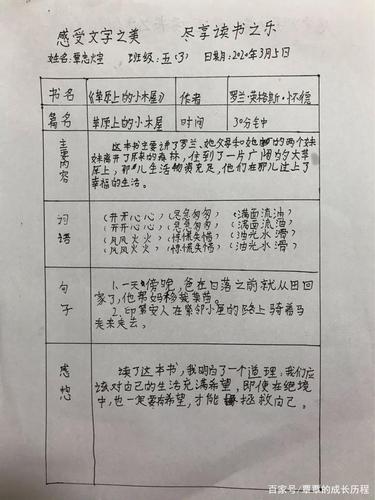 感受文字之美 尽享读书之乐
姓名:覃志煊 班级:五(3) 日期:2020年3月5日
书名 《草原上的小木屋》 作者 罗兰·英格斯·怀德
篇名 草原上的小木屋 时间 30分钟
主要内容
这本书主要讲了罗兰、她父母和她的两个妹
妹离开了原来的森林,住到了一片广阔的大草
原上,那儿生活物资充足,他们在那儿过上了
幸福的生活。
词语
(开开心心)(匆匆)(满面流油)
(开开心心)(匆匆)(满面流油)
(风风火火)(惊慌失措)(油光水滑)
(风风火火)(惊慌失措)(油光水滑)
句子
1.一天傍晚,爸在日落之前就从田回
家了,他帮妈移栽
2.印第安人在紧邻小屋的路上骑着马
走来走去。
感想
读了这本书,我明白了一个道理:我们应
该对自己的生活充满希望,即使在绝境
中,也一定要有希望,才能拯救自己。
百家号/覃覃的成长历程